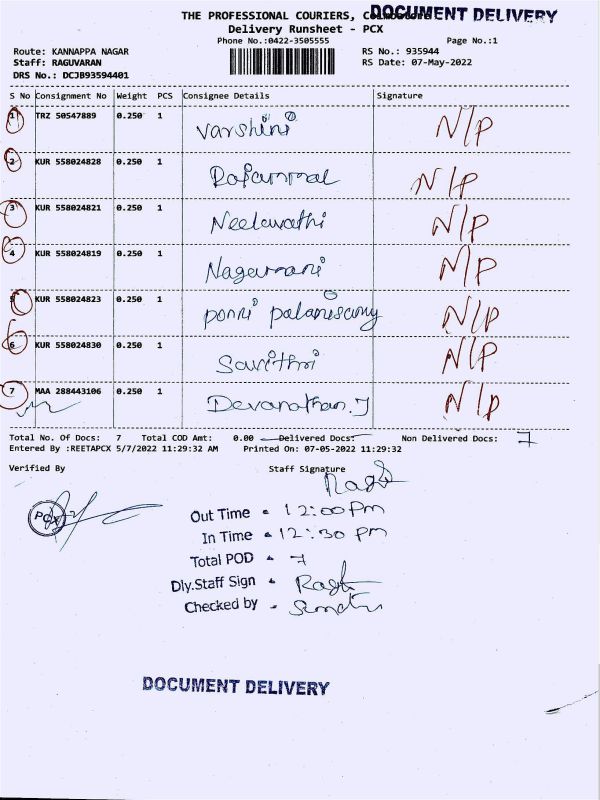 THE PROFESSIONAL COURIERS, Coimbatore
DOCUMENT DELIVERY
Delivery Runsheet - PCX
Phone No.:0422-3505555 Page No.:1
Route: KANNAPPA NAGAR RS No.: 935944
Staff: RAGUVARAN RS Date: 07-May-2022
DRS No.: DCJB93594401
S No Consignment No Weight PCS Consignee Details Signature
1 TRZ 50547889 0.250 1 Varshini N/P
2 KUR 558024828 0.250 1 Rajammal N/P
3 KUR 558024821 0.250 1 Neelavathi N/P
4 KUR 558024819 0.250 1 Nagamani N/P
5 KUR 558024823 0.250 1 ponni palanisamy N/P
6 KUR 558024830 0.250 1 Savithri N/P
7 MAA 288443106 0.250 1 Devanathan.J N/P
Total No. Of Docs: 7 Total COD Amt: 0.00 Delivered Docs: Non Delivered Docs: 7
Entered By :REETAPCX 5/7/2022 11:29:32 AM Printed On: 07-05-2022 11:29:32
Verified By Staff Signature
PCX
Out Time - 12:00 pm
In Time - 12:30 pm
Total POD - 7
Dly.Staff Sign -
Checked by -
DOCUMENT DELIVERY